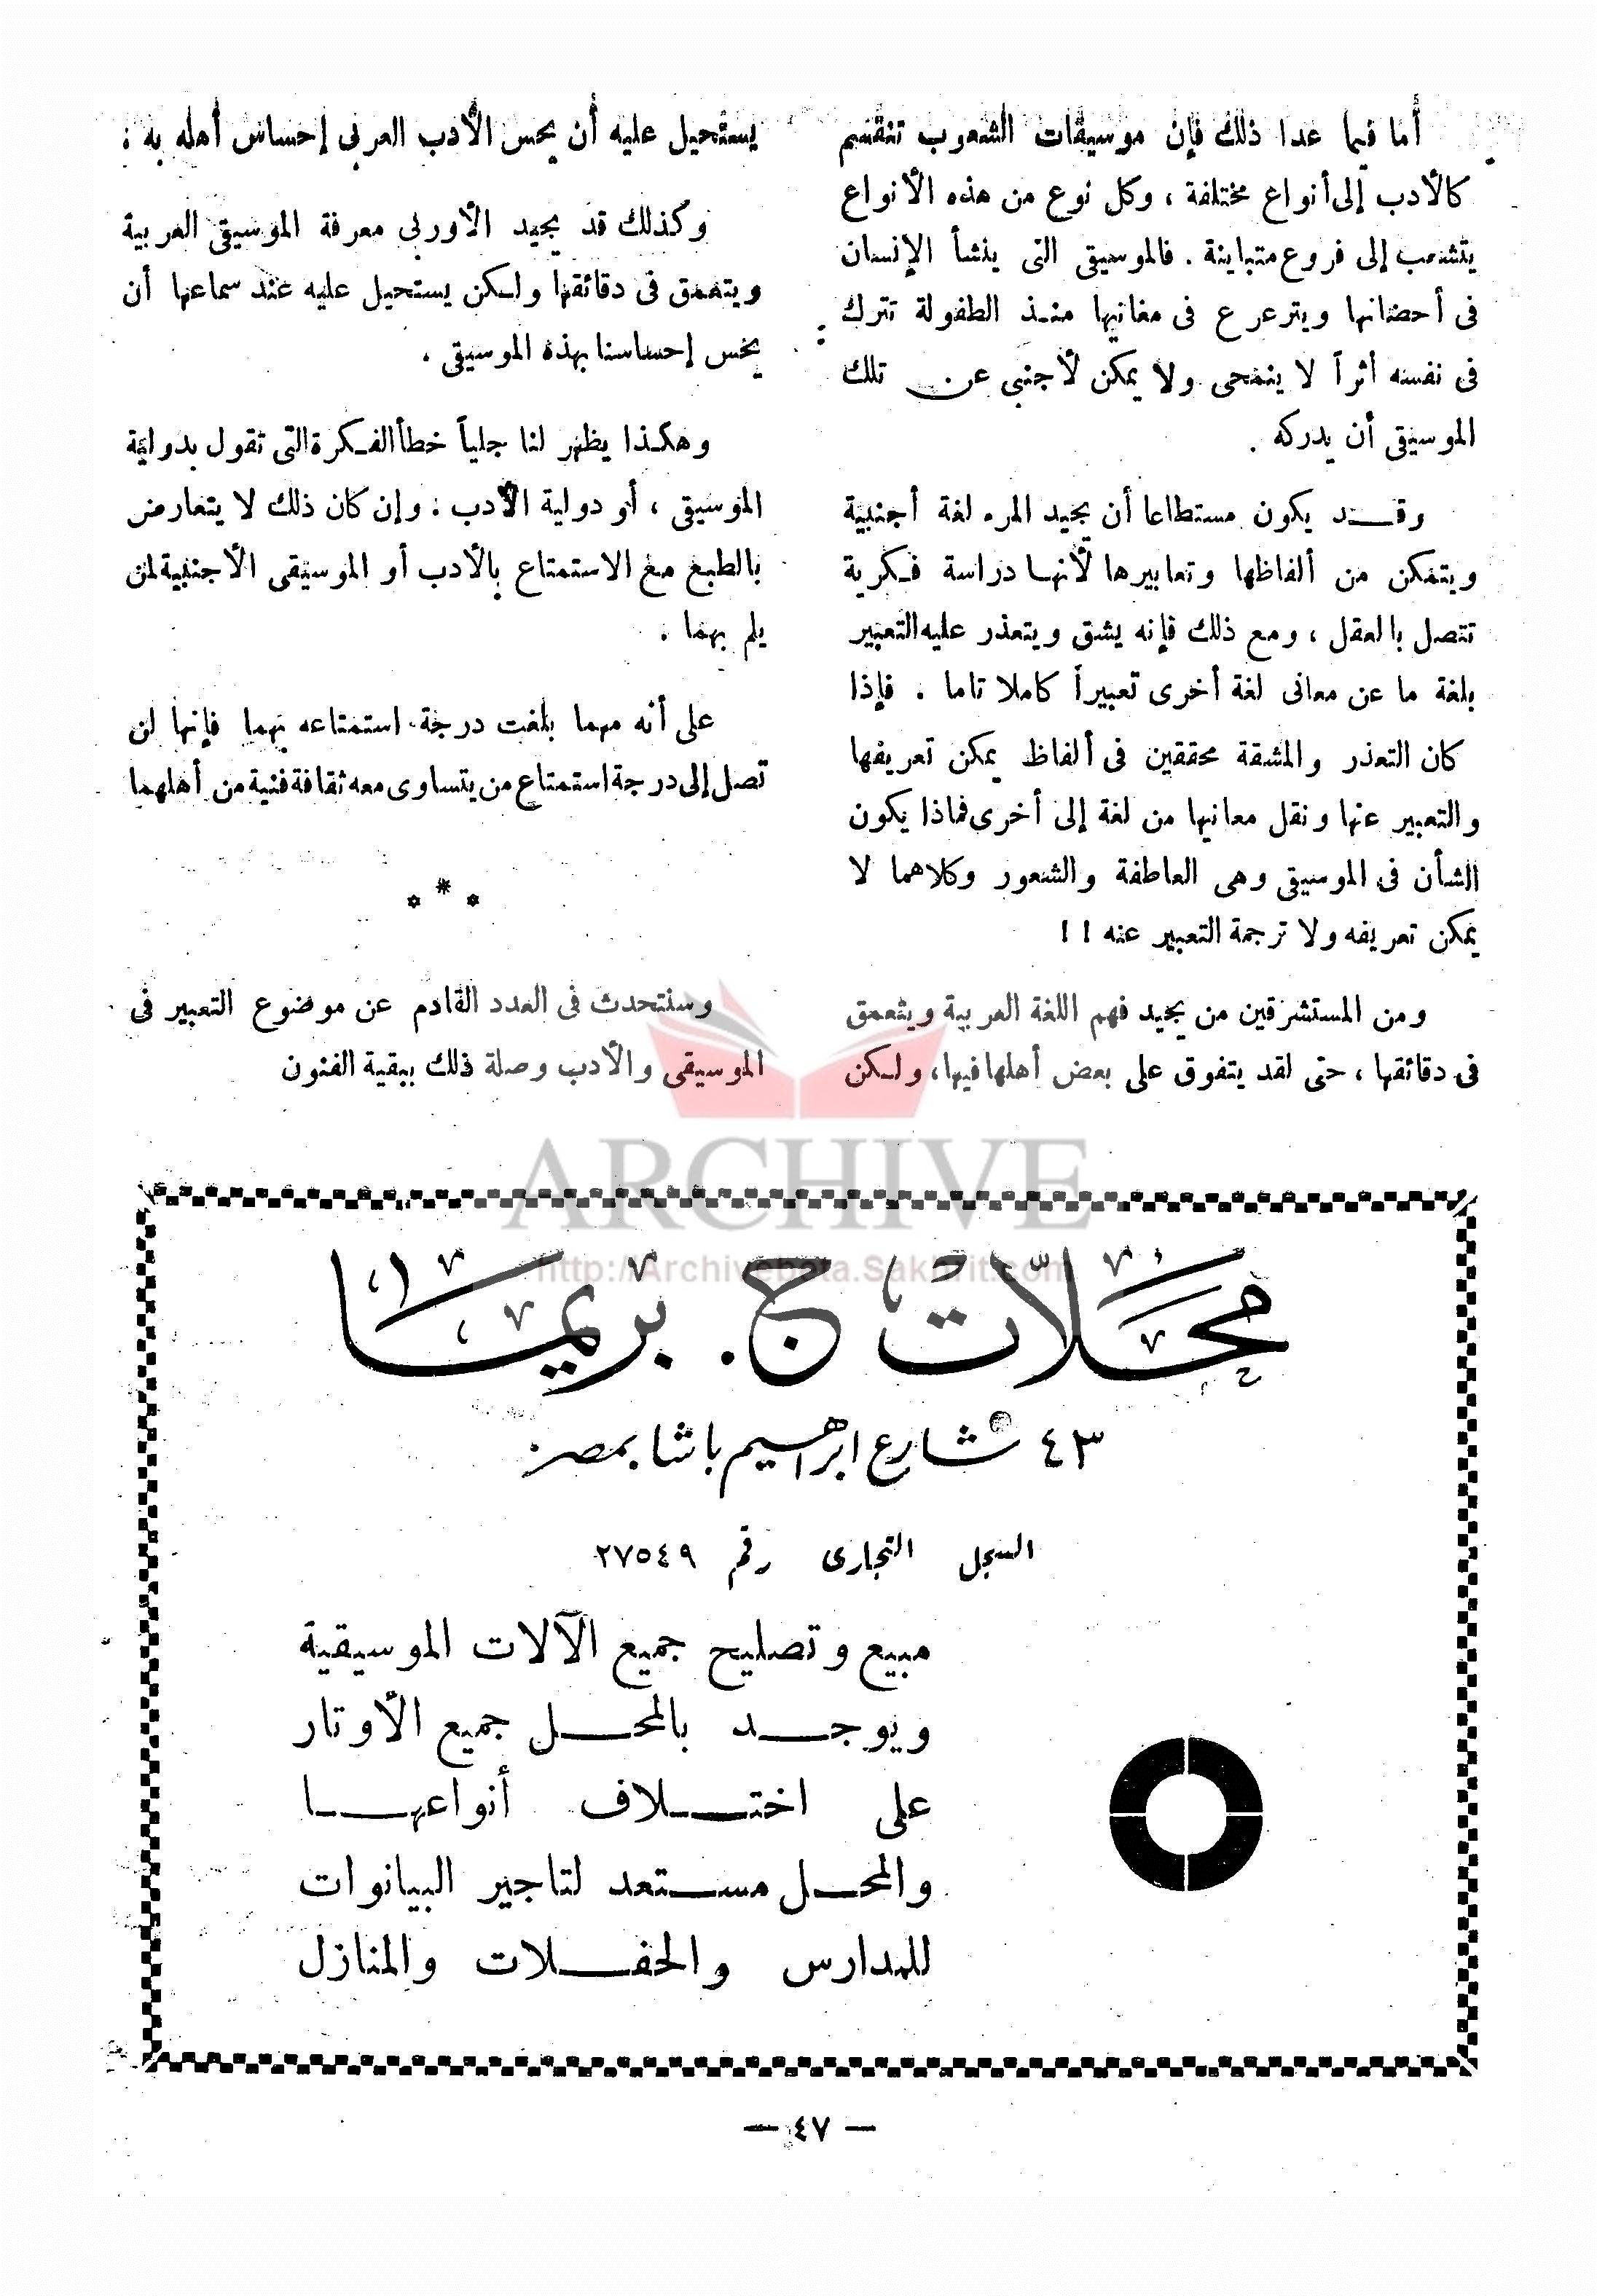 أما فيما عدا ذلك فإن موسيقات الشعوب تنقسم
كالأدب إلى أنواع مختلفة ، وكل نوع من هذه الأنواع
يتشعب إلى فروع متباينة . فالموسيقى التى ينشأ الإنسان
فى أحضانها ويترعرع فى مغانيها منذ الطفولة تترك
فى نفسه أثراً لا ينمحى ولا يمكن لأجنبى عن تلك
الموسيقى أن يدركه .
وقد يكون مستطاعا أن يجيد المرء لغة أجنبية
ويتمكن من ألفاظها وتعابيرها لأنها دراسة فكرية
تتصل بالعقل ، ومع ذلك فإنه يشق ويتعذر عليه التعبير
بلغة ما عن معانى لغة أخرى تعبيراً كاملا تاما . فإذا
كان التعذر والمشقة محققين فى ألفاظ يمكن تعريفها
والتعبير عنها ونقل معانيها من لغة إلى أخرى فماذا يكون
الشأن فى الموسيقى وهى العاطفة والشعور وكلاهما لا
يمكن تعريفه ولا ترجمة التعبير عنه ! !
ومن المستشرقين من يجيد فهم اللغة العربية ويتعمق
فى دقائقها ، حتى لقد يتفوق على بعض أهلها فيها ، ولكن
يستحيل عليه أن يحس الأدب العربى إحساس أهله به :
وكذلك قد يجيد الأوربى معرفة الموسيقى العربية
ويتعمق فى دقائقها ولكن يستحيل عليه عند سماعها أن
يحس إحساسنا بهذه الموسيقى .
وهكذا يظهر لنا جلياً خطأ الفكرة التى تقول بدولية
الموسيقى ، أو دولية الأدب . وإن كان ذلك لا يتعارض
بالطبع مع الاستمتاع بالأدب أو الموسيقى الأجنبية لمن
يلم بهما .
على أنه مهما بلغت درجة استمتاعه بهما فإنها لن
تصل إلى درجة استمتاع من يتساوى معه ثقافة فنية من أهلهما
* * *
وسنتحدث فى العدد القادم عن موضوع التعبير فى
الموسيقى والأدب وصلة ذلك ببقية الفنون
ARCHIVE
http://Archivebeta.Sakhrit.com
محلّات ج. بريما
٤٣ شارع ابراهيم باشا بمصر
السجل التجارى رقم ٢٧٥٤٩
مبيع وتصليح جميع الآلات الموسيقية
ويوجد بالمحل جميع الأوتار
على اختلاف أنواعها
والمحل مستعد لتاجير البيانوات
للمدارس والحفلات والمنازل
— ٤٧ —